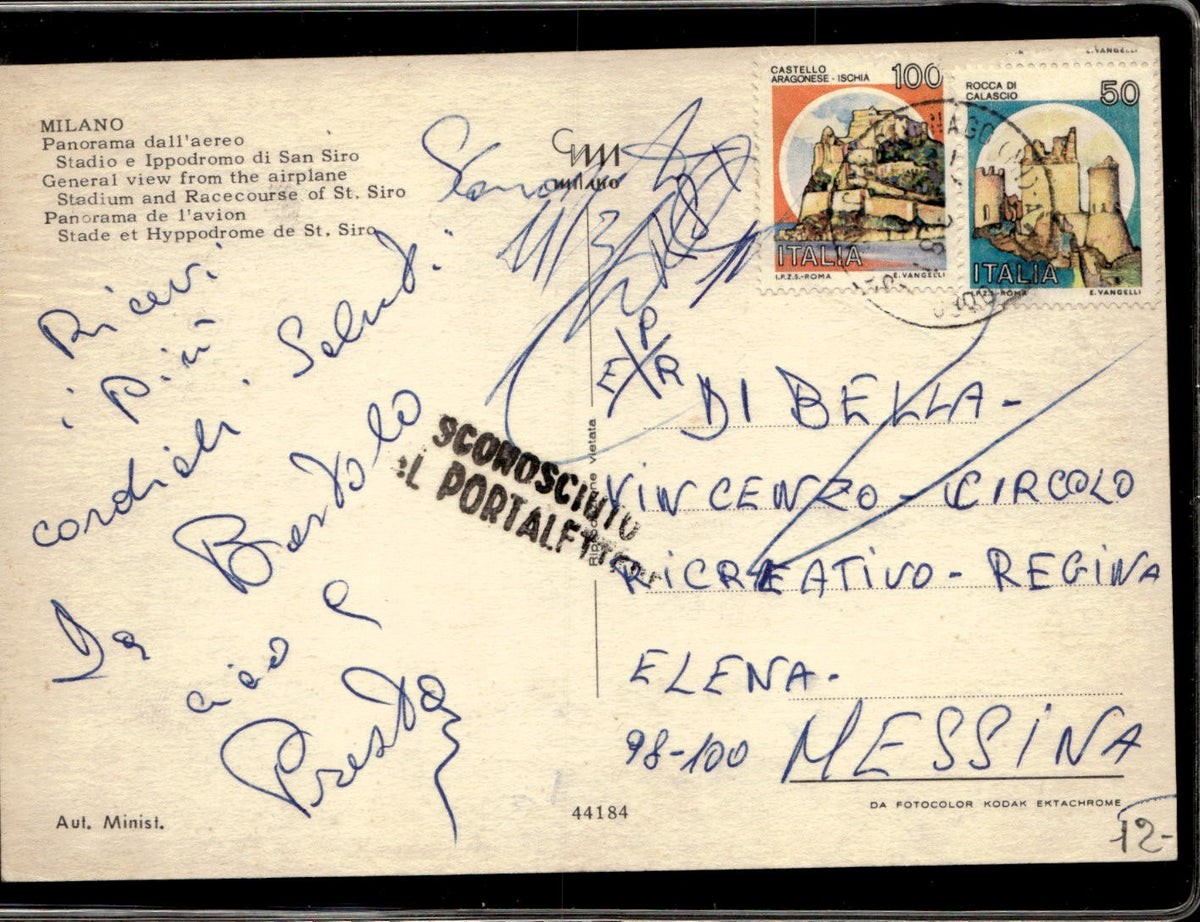 MILANO
Panorama dall'aereo
Stadio e Ippodromo di San Siro
General view from the airplane
Stadium and Racecourse of St. Siro
Panorama de l'avion
Stade et Hyppodrome de St. Siro
MILANO
11/3
CASTELLO
ARAGONESE - ISCHIA
100
ITALIA
I.P.Z.S.-ROMA E. VANGELLI
E. VANGELLI
ROCCA DI
CALASCIO
50
ITALIA
I.P.Z.S.-ROMA E. VANGELLI
Ricevi
i più
cordiali Saluti.
Da Bartolo
ciao e
Presto
SCONOSCIUTO
AL PORTALETTERE
EXPR
DI BELLA-
VINCENZO - CIRCOLO
RICREATIVO - REGINA
ELENA.
98-100 MESSINA
Riproduzione vietata
DA FOTOCOLOR KODAK EKTACHROME
Aut. Minist.
44184
12-